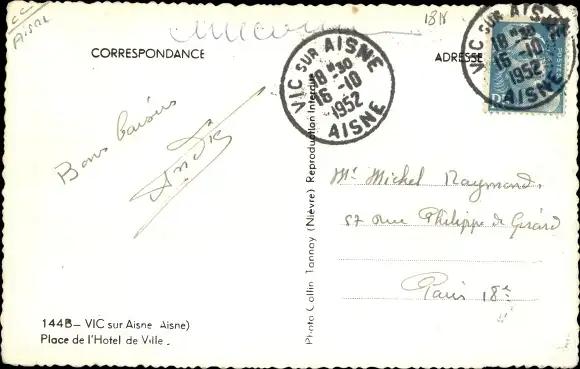 Aisne
18 F
CORRESPONDANCE
ADRESSE
VIC SUR AISNE
18 H30
16 -10
1952
AISNE
VIC SUR AISNE
18 H30
16 -10
1952
AISNE
Bons baisers
André
Photo Collin Tannay (Nièvre) Reproduction Interdite
Mr Michel Raymond,
57 rue Philippe de Girard
Paris 18e
144B – VIC sur Aisne Aisne)
Place de l'Hotel de Ville .